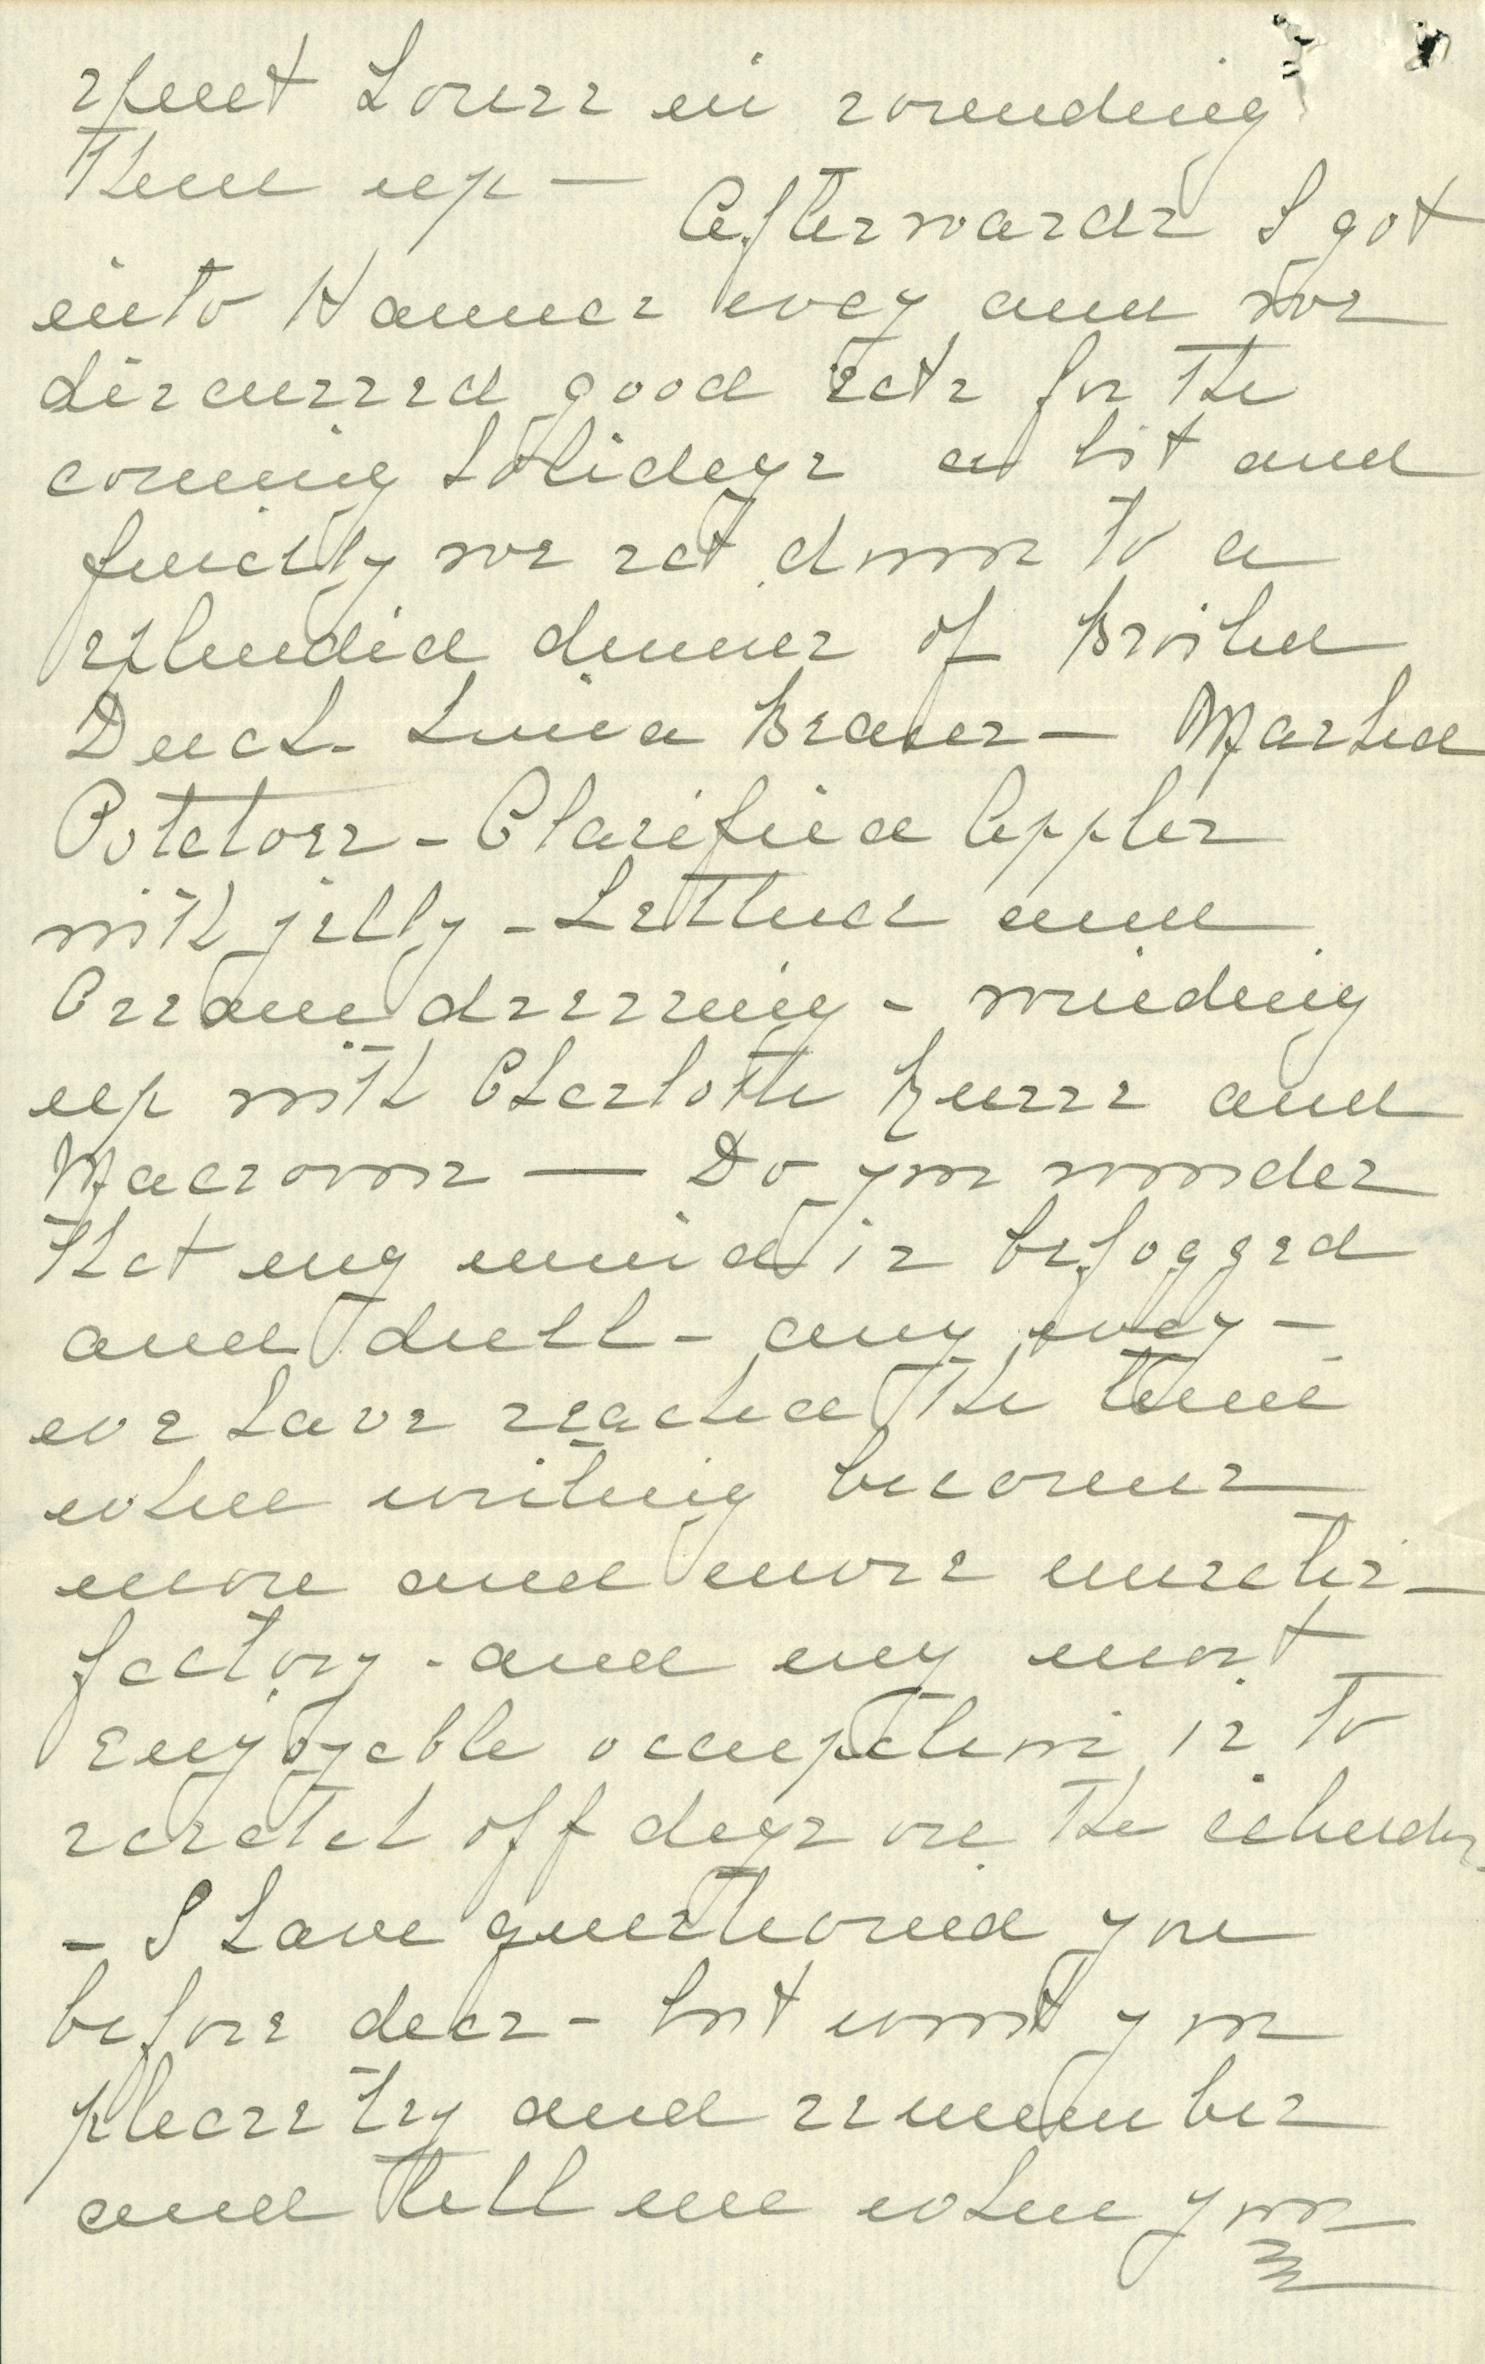 spent hours in rounding
them up —
Afterwards I got
into Hanner way and we
discussed good eats for the
coming holidays a bit and
finally we sat down to a
splendid dinner of Broiled
Duck - Lima Beans — Mashed
Potatoes - Clarified Apples
with jelly - Lettuce and
Cream dressing - winding
up with Charlotte Russe and
Macroons — Do you wonder
that my mind is befogged
and dull - any way -
we have reached the time
when writing becomes
more and more unsatis-
factory - and my most
enjoyable occupation is to
scratch off days on the calendar
- I have questioned you
before dear - but wont you
please try and remember
and tell me when you